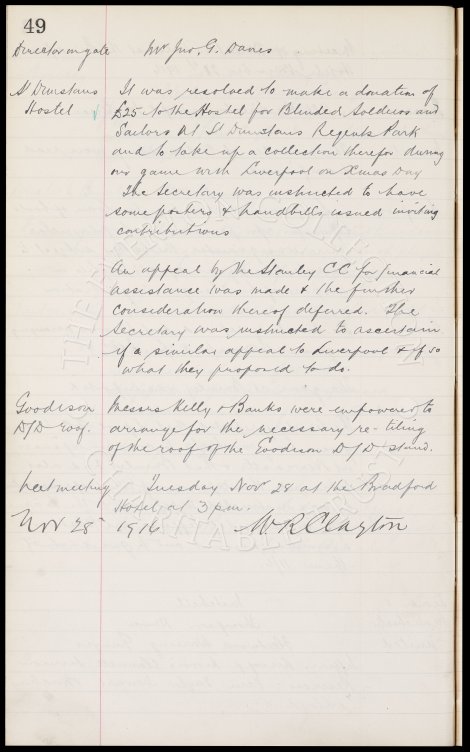 49
Director on gate Mr Jno. G. Davies
St Dunstans It was resolved to make a donation of
Hostel £25 to the Hostel for Blinded Soldiers and
Sailors at St Dunstans Regents Park
and to take up a collection therefor during
our game with Liverpool on Xmas Day
The Secretary was instructed to have
some posters & handbills issued inviting
contributions
An appeal by the Stanley CC for financial
assistance was made & the further
consideration thereof deferred. The
Secretary was instructed to ascertain
if a similar appeal to Liverpool & if so
what they proposed to do.
Goodison Messrs Kelly & Banks were empowered to
D/D roof. arrange for the necessary re-tiling
of the roof of the Goodison D/D stand.
Next meeting Tuesday Nov 28 at the Bradford
Hotel at 3 pm.
Nov 28 1916 W R Clayton